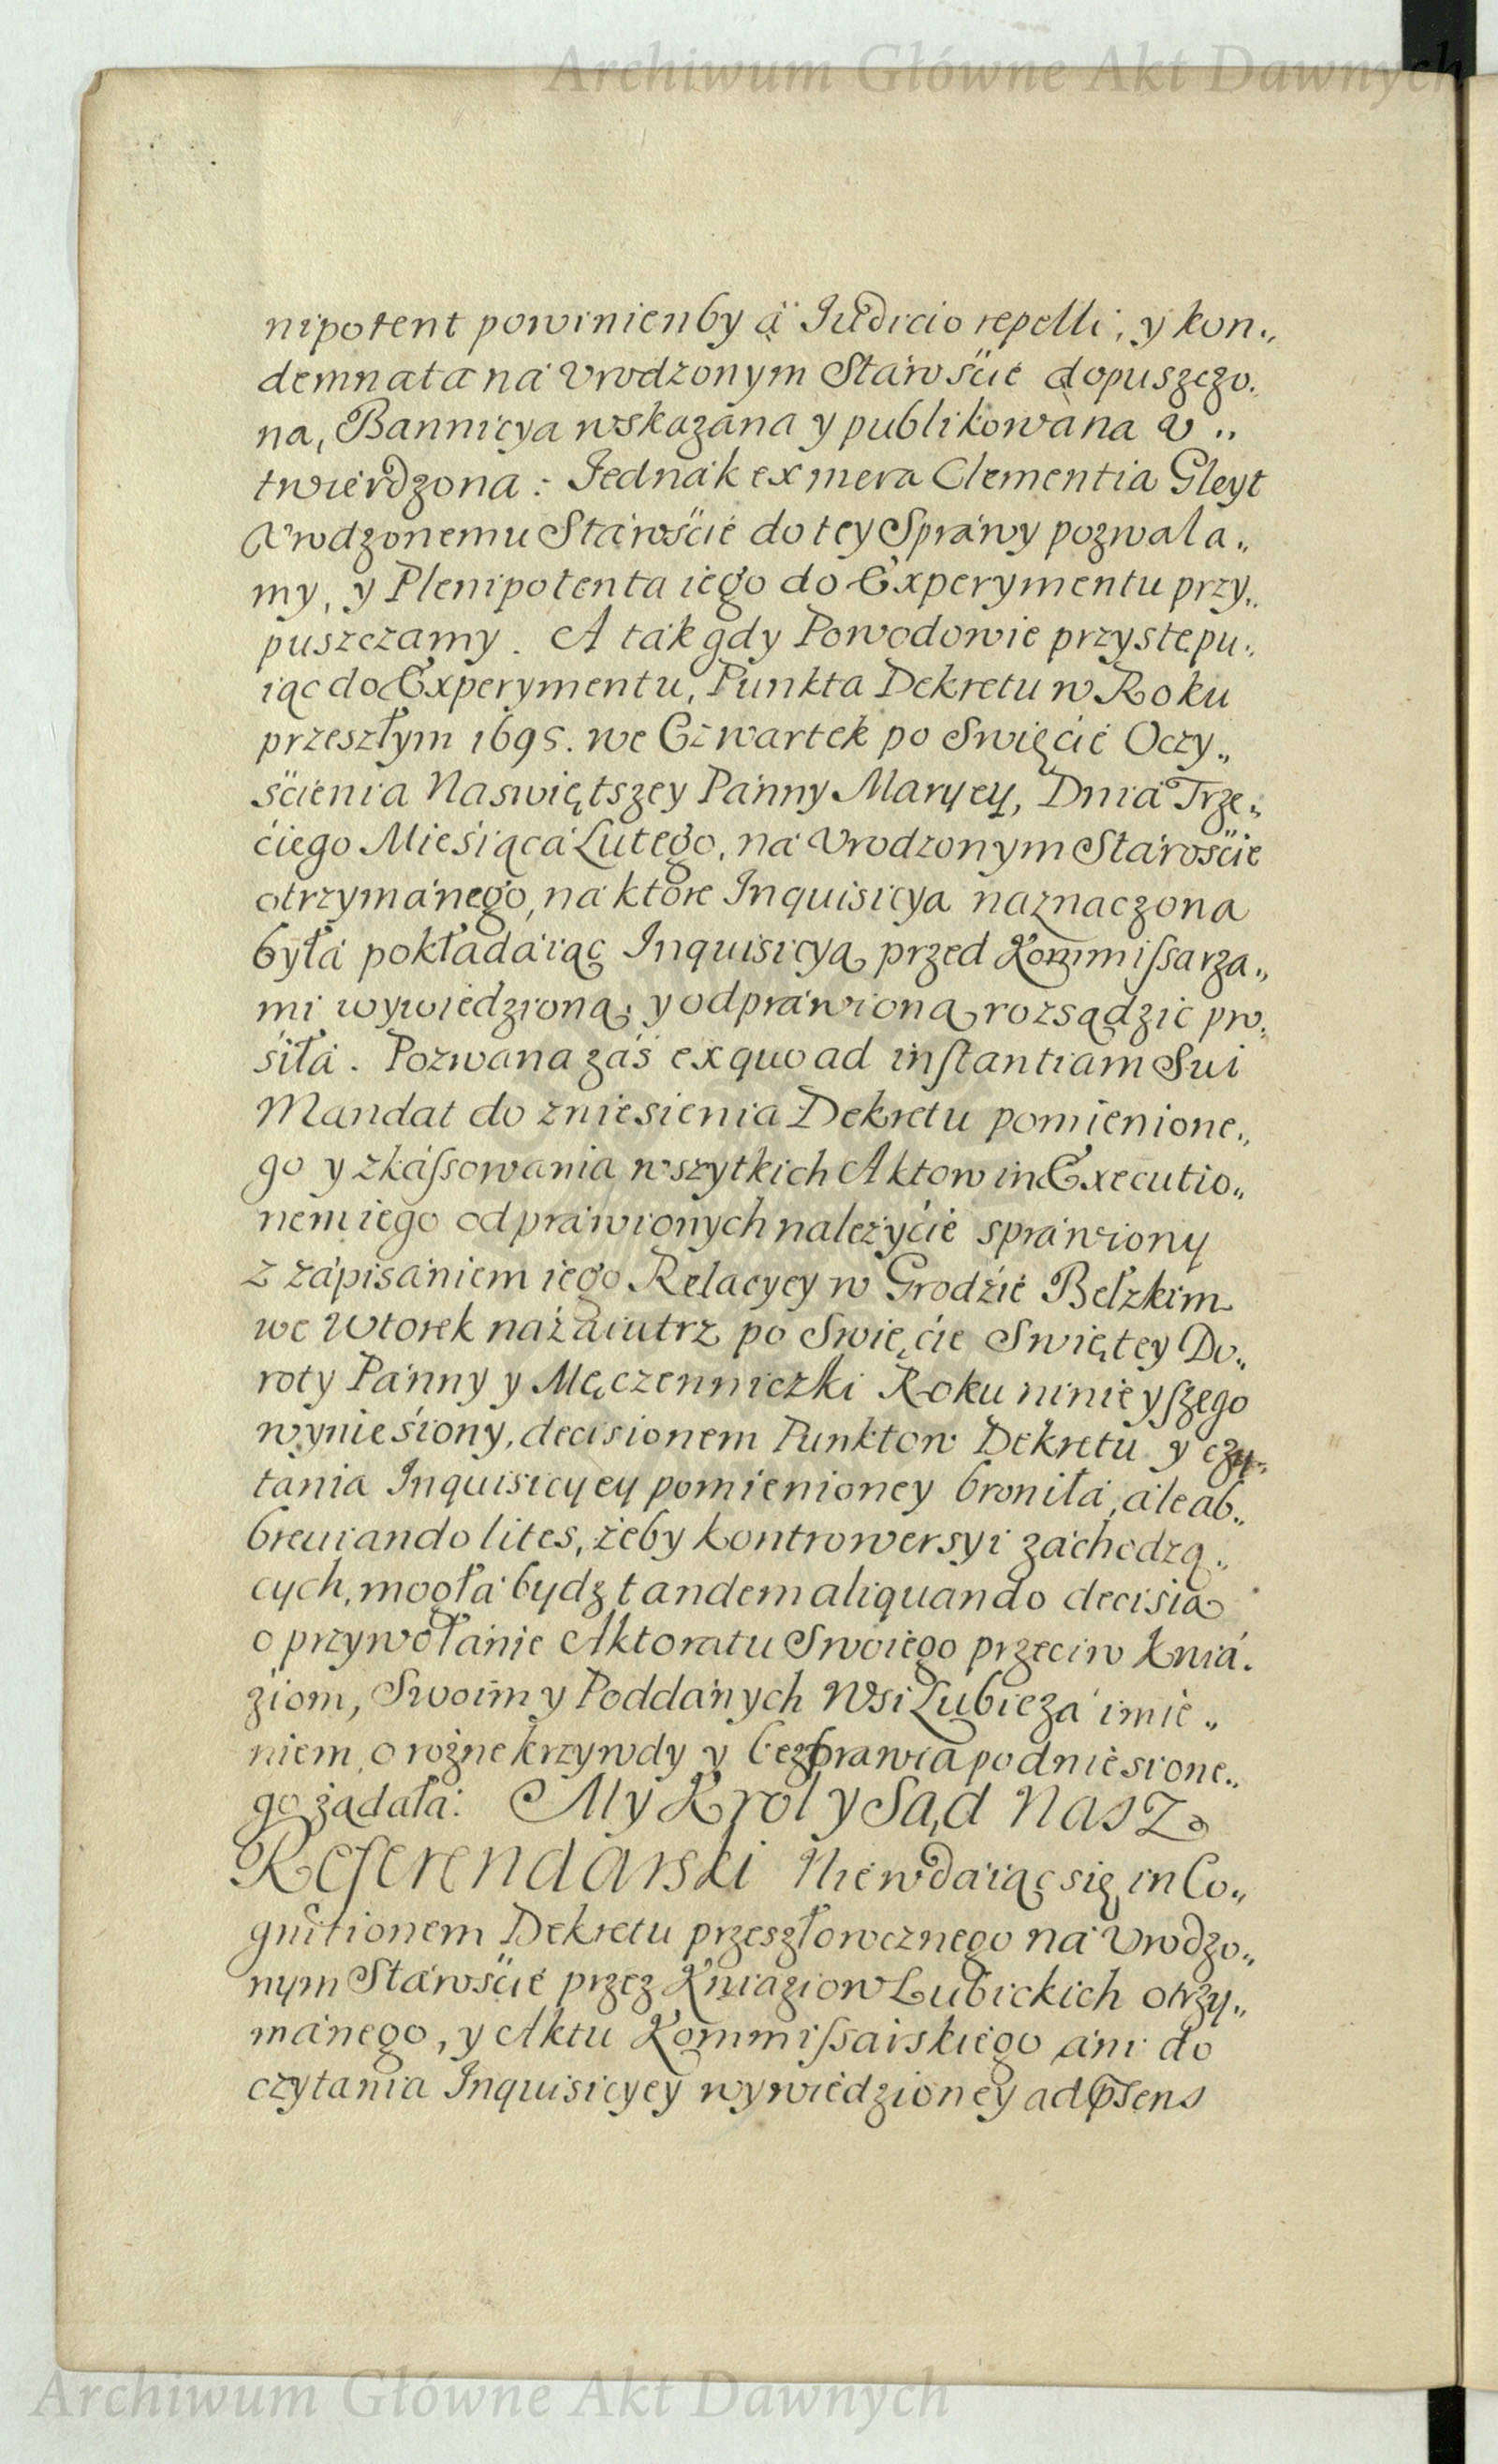 Archiwum Główne Akt Dawnych
nipotent powinienby á Iudicio repelli; y kon„
demnata ná Vrodzonym Stárośćié dopuszczo„
na, Bannicya wskazána y publikowána v„
twierdzona: Iednák ex mera Clementia Gleyt
Vrodzonemu Stárośćié do tey Spráwy pozwala„
my, y Plenipotenta iego do Experymentu przy„
puszczamy. A ták gdy Powodowie przystępu„
iąc do Experymentu, Punkta Dekretu w Roku
przeszłym 1695. we Czwartek po Swięćié Oczy„
śćienia Naswiętszey Pánny Maryey, Dniá Trze„
ćiego Mieśiącá Lutego, ná Vrodzonym Stárośćie
otrzymánego, ná ktore Inquisicya naznaczona
byłá pokładáiąc Inquisicyą przed Kommißarza„
mi wywiedzioną, y odpráwioną rozsądzić pro„
śiłá. Pozwana záś ex quo ad instantiam Sui
Mandat do zniesienia Dekretu pomienione„
go y zkáßowania wszytkich Aktow in Executio„
nem iego odpráwionych należyćié spráwiony
z zápisániem iego Relacyey w Grodźié Bełzkim
we Wtorek názáiutrz po Swięćie Swiętey Do„
roty Pánny y Męczenniczki Roku ninieyszego
wynieśiony, decisionem Punktow Dekretu y czy„
tania Inquisicyey pomienioney broniłá, ále ab„
breuiando lites, żeby kontrowersyi záchodzą„
cych, mogłá bydz tandem aliquando decisia
o przywołánie Aktoratu Swoiego przeciw Kniá„
ziom, Swoim y Poddánych Wsi Lubiczá imie„
niem, o rożne krzywdy y bezprawia podniesione„
go żądałá: My Krol y Sąd Nasz
Referendarski Nie wdáiąc się in Co„
gnitionem Dekretu przeszłorocznego ná Vrodzo„
nym Stárośćié przez Kniaziow Lubickich otrzy„
mánego, y Aktu Kommißarskiego áni do
czytania Inquisicyey wywiedzioney ad prsens
Archiwum Główne Akt Dawnych